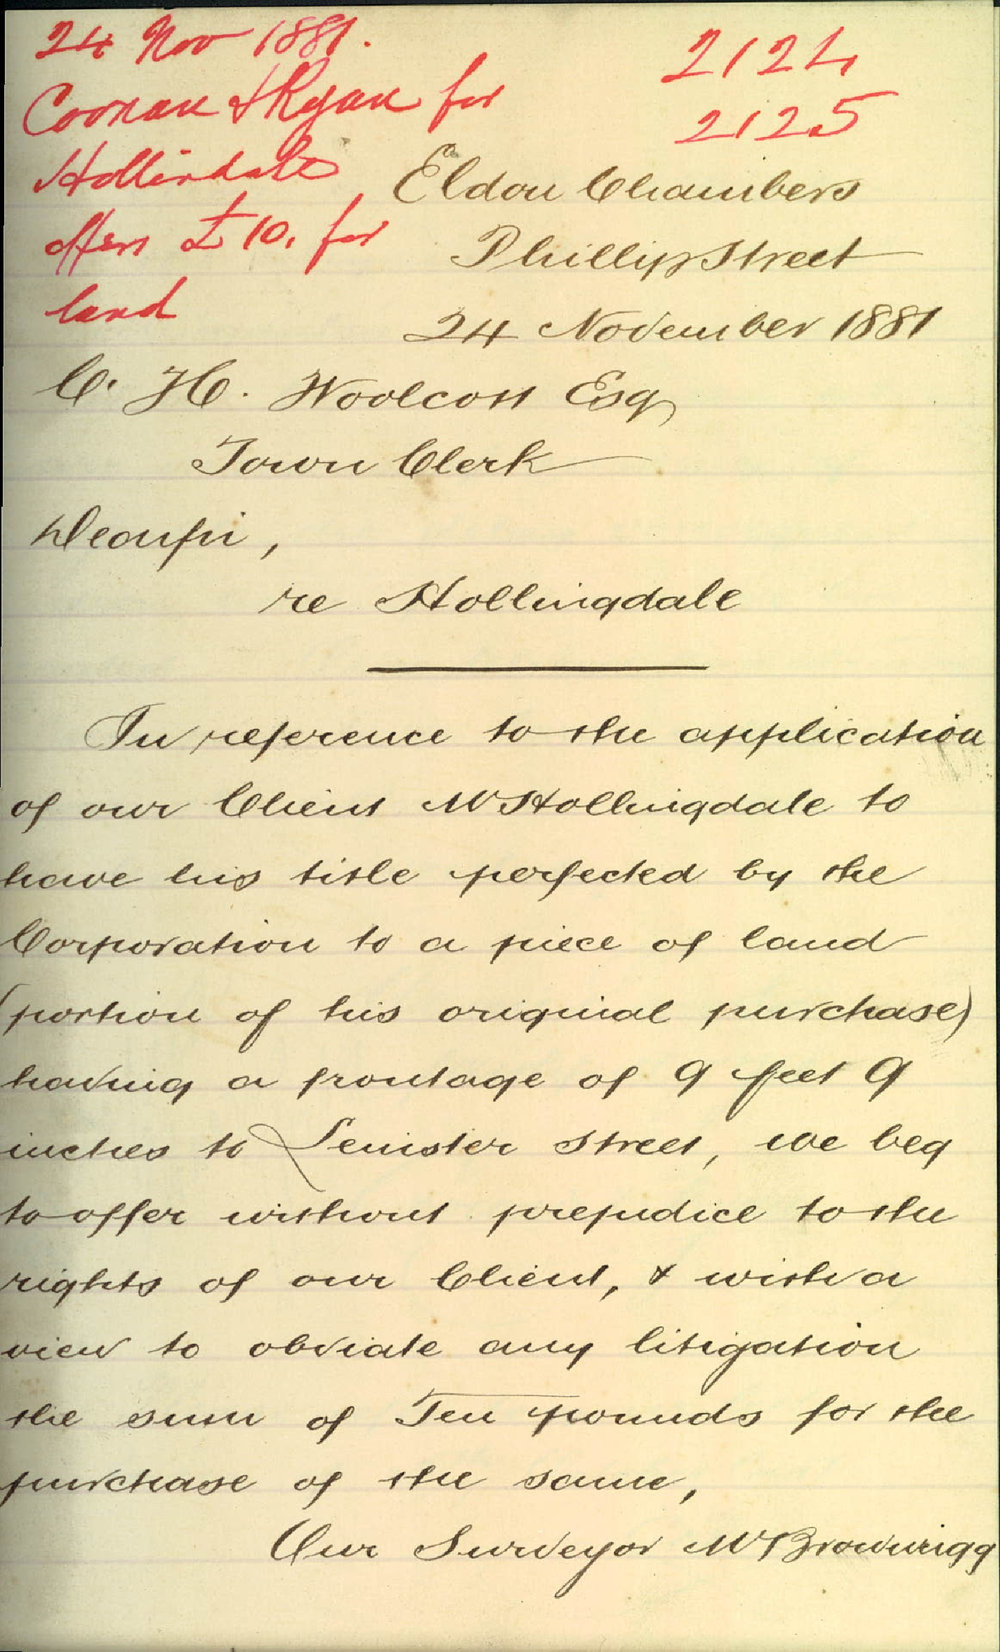 24 Nov 1881.
Coonan & Ryan for
Hollindale
offers £10. for
land
2124
2125
Eldon Chambers
Phillip Street
24 November 1881
C. H. Woolcott Esq
Town Clerk
Dear Sir,
re Hollingdale
In reference to the application
of our Client Mr Hollingdale to
have his title perfected by the
Corporation to a piece of land
(portion of his original purchase)
having a frontage of 9 feet 9
inches to Leinster Street, we beg
to offer without prejudice to the
rights of our Client, & with a
view to obviate any litigation
the sum of Ten pounds for the
purchase of the same,
Our Surveyor Mr Brownrigg